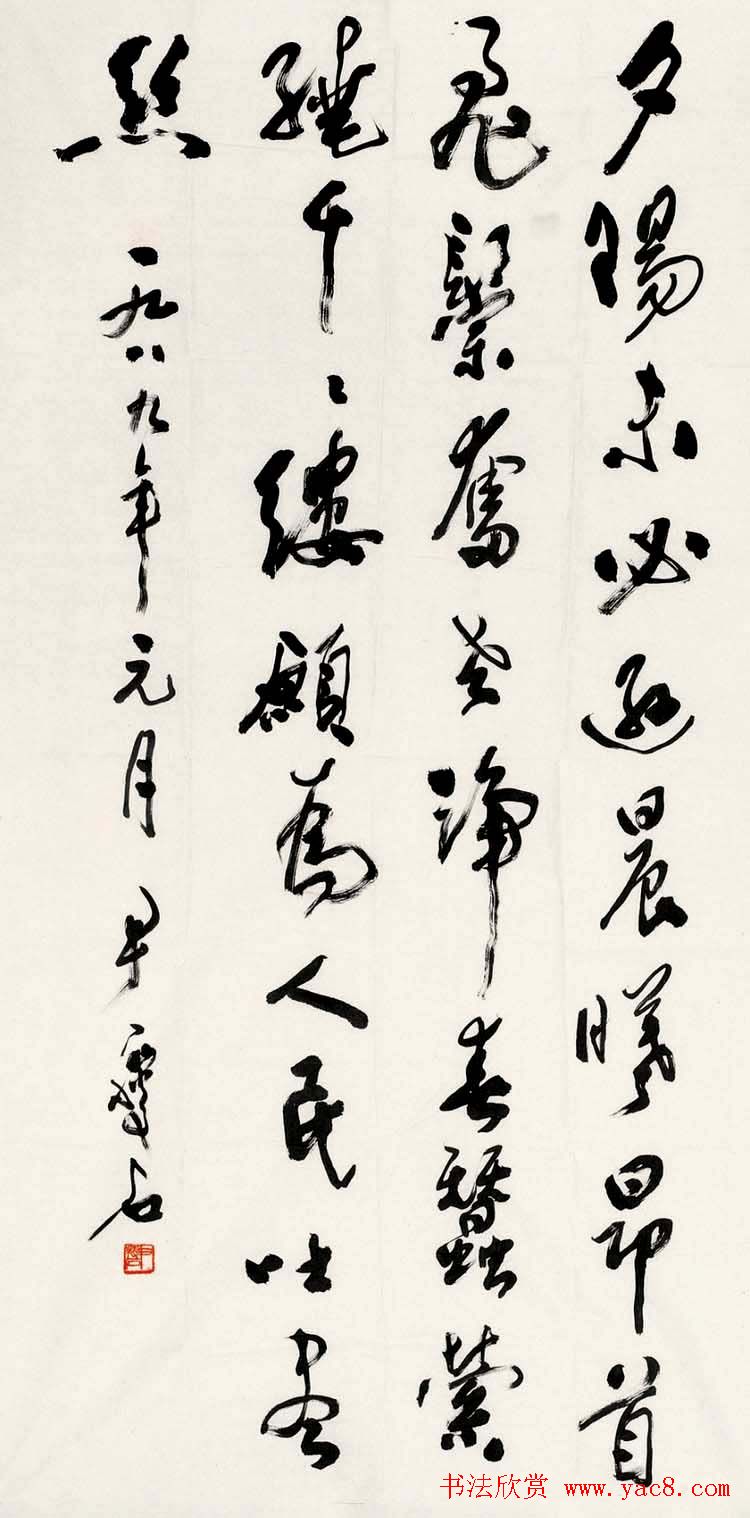 夕陽未必遜晨曦昂首
飛鬃奮老蹄春蠶縈
繞千々縷願為人民吐盡
絲 一九八九年元月 尹瘦石
书法欣赏 www.yac8.com